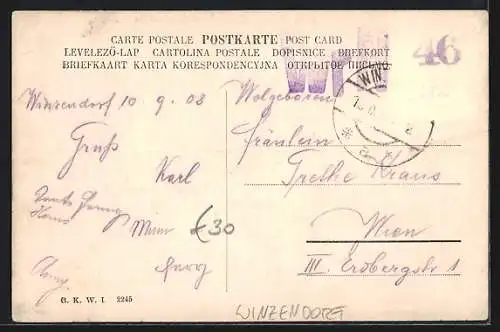 CARTE POSTALE POSTKARTE POST CARD
LEVELEZŐ-LAP CARTOLINA POSTALE DOPISNICE BREFKORT
BRIEFKAART KARTA KORESPONDENCYJNA ОТКРЫТОЕ ПИСЬМО
46
WIN
Winzendorf 10 9. 08
Wolgeboren
Gruß
Fräulein
Karl
Grethe Kraus
Tante
Hans
Mimi
£30
Wien
III. Erdbergstr 1
B. K. W. I. 2245
WINZENDORF